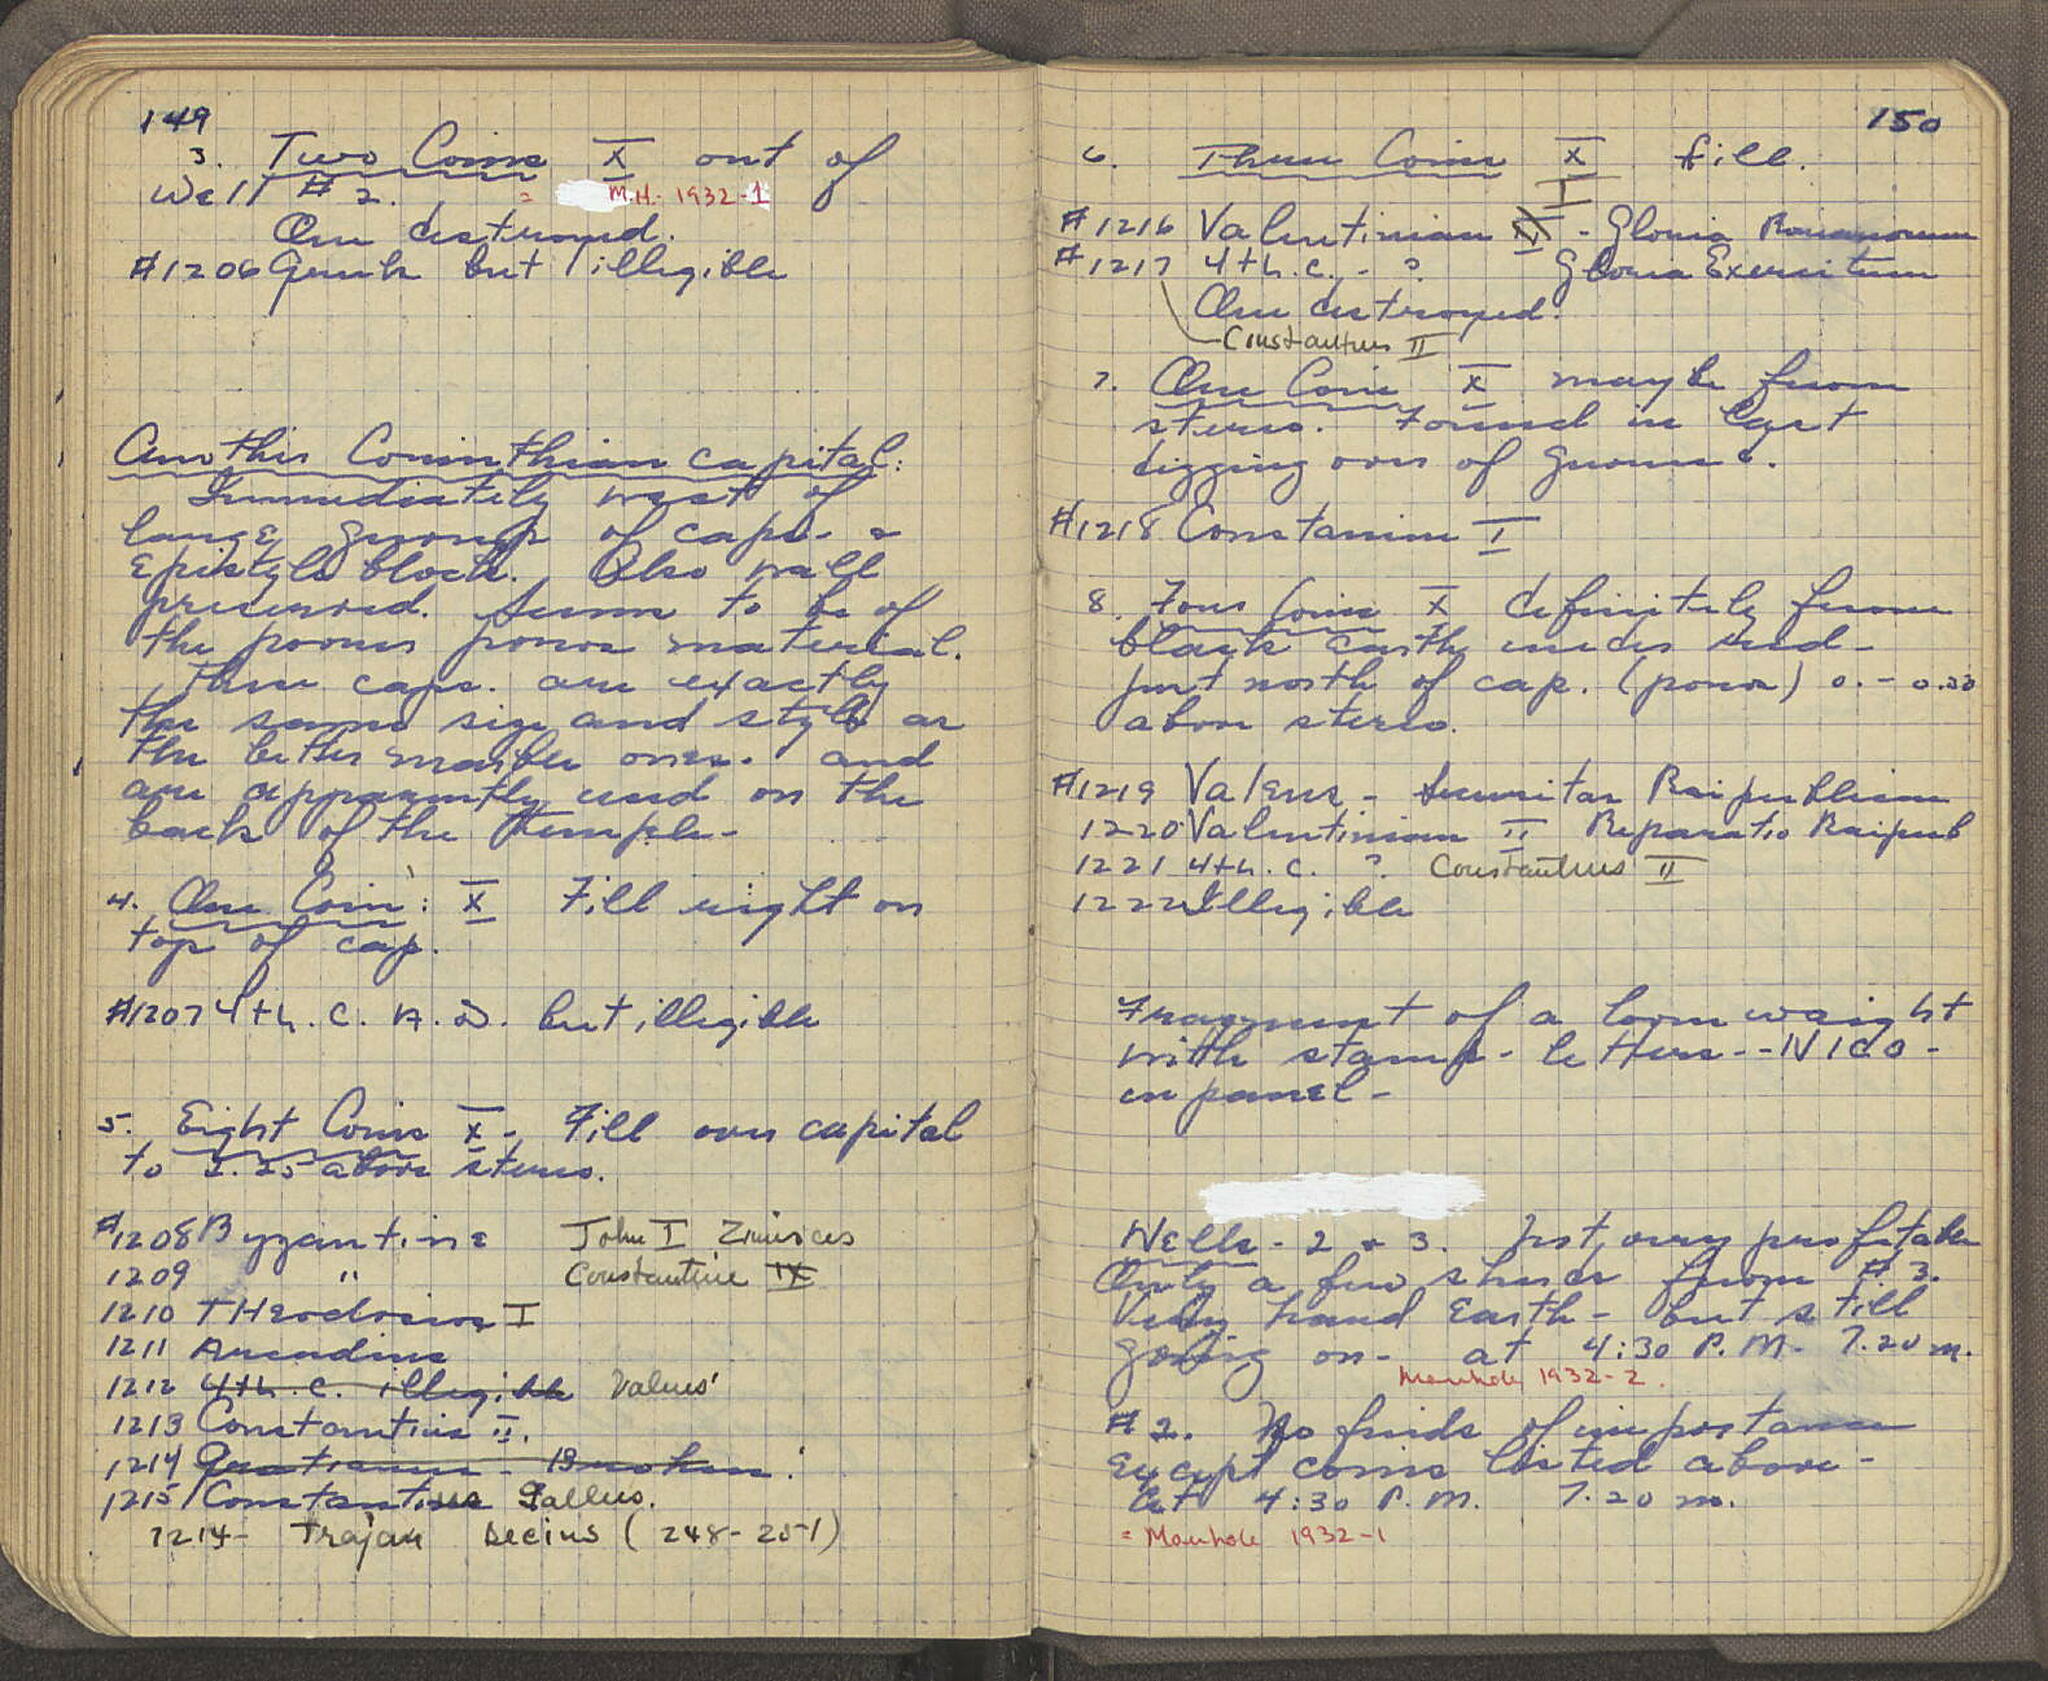 149
3. Two Coins X out of
Well #2. = M.H. 1932-1
One destroyed.
#1206 Greek but illegible
Another Corinthian capital:
Immediately west of
large group of caps. &
Epistyle block. Also well
preserved. Seems to be of
the poorer poros material.
These caps. are exactly
the same size and style as
the better marble ones. and
are apparently used on the
back of the temple-
4. One Coin: X Fill right on
top of cap.
#1207 4th. C. A.D. but illegible
5. Eight Coins X - Fill over capital
to 2.25 above stereo.
#1208 Byzantine John I Zimisces
1209 " Constantine IX
1210 THeodosius I
1211 Arcadius
1212 4th. C. illegible Valens
1213 Constantius II.
1214 Gratianus - Broken.
1215 Constantius Gallus.
1214- Trajan Decius (248-251)
150
6. Three Coins X fill.
I
#1216 Valentinian II - Gloria Romanorum
#1217 4th. C. - ? Gloria Exercitum
One destroyed.
Constantius II
7. One Coin X maybe from
stereo. Found in last
digging over of ground.
#1218 Constantine I
8. Four Coins X definitely from
black earth under red-
just north of cap. (poros) 0.-0.50
above stereo.
#1219 Valens - Securitas Reipublicae
1220 Valentinian II Reparatio Reipub
1221 4th. C. ? Constantius II
1222 Illegible
Fragment of a loom weight
with stamp- letters--NICO-
in panel-
Wells - 2 & 3. Not very profitable
Only a few sherds from #3.
Very hard Earth - but still
going on- at 4:30 P.M. 7.20 m.
Manhole 1932-2.
#2. No finds of importance
Except coins listed above-
At 4:30 P.M. 7.20 m.
= Manhole 1932-1